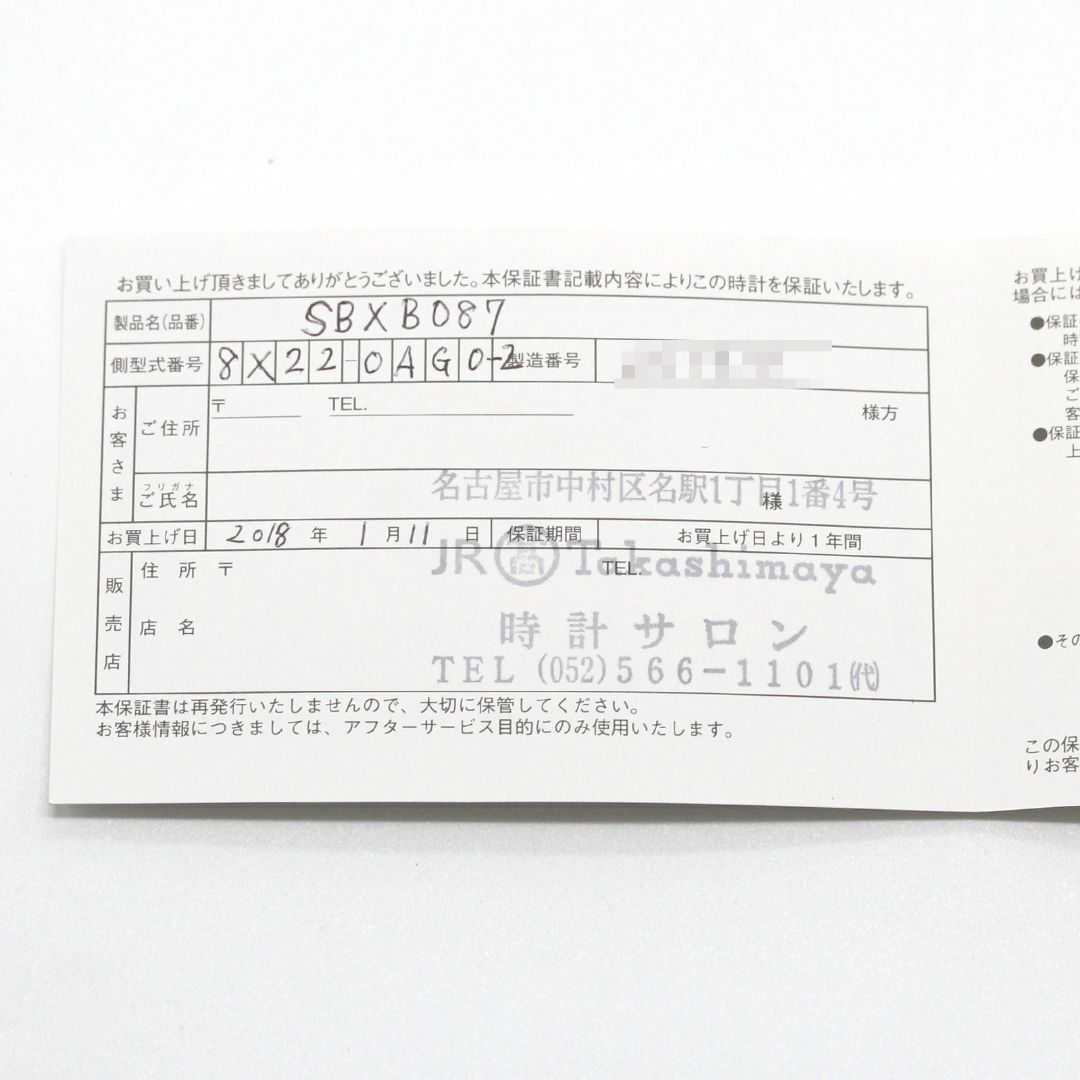 お買い上げ頂きましてありがとうございました。本保証書記載内容によりこの時計を保証いたします。
製品名(品番) SBXB087
側型式番号 8X22-0AG0-2 製造番号
お客さま
ご住所 〒 TEL. 様方
フリガナ
ご氏名 様
名古屋市中村区名駅1丁目1番4号
お買上げ日 2018 年 1 月 11 日 保証期間 お買上げ日より1年間
JR 髙 Takashimaya
販売店
住所 〒 TEL.
店名
時計サロン
TEL (052)566-1101(代)
本保証書は再発行いたしませんので、大切に保管してください。
お客様情報につきましては、アフターサービス目的にのみ使用いたします。
お買上げ
場合には
●保証
時
●保証
保
ご
客
●保証
上
●その
この保
りお客